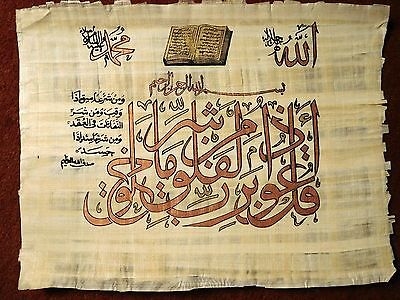 الله جل جلاله
محمد
بسم الله الرحمن الرحيم
قل أعوذ برب الفلق من شر ما خلق
ومن شر غاسق إذا
وقب ومن شر
النفاثات في العقد
ومن شر حاسد إذا
حسد
صدق الله العظيم